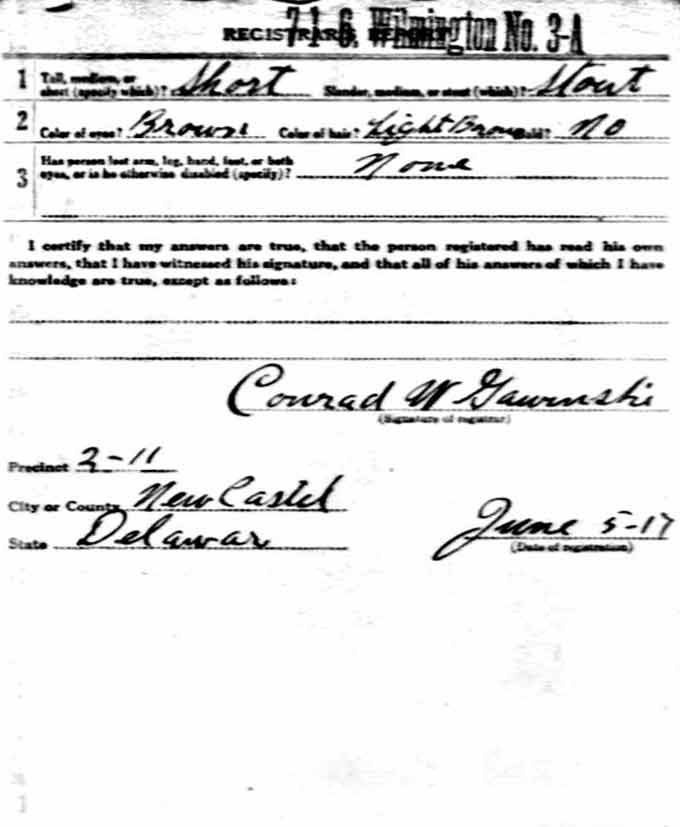 REGISTRAR'S REPORT
7-1-6. Wilmington No. 3-A
1 Tall, medium, or short (specify which)? Short Slender, medium, or stout (which)? Stout
2 Color of eyes? Brown Color of hair? Light Brown Bald? No
3 Has person lost arm, leg, hand, foot, or both
eyes, or is he otherwise disabled (specify)? None
I certify that my answers are true, that the person registered has read his own
answers, that I have witnessed his signature, and that all of his answers of which I have
knowledge are true, except as follows:
Conrad W Gawinski
(Signature of registrar)
Precinct 2-11
City or County New Castel
State Delawar
June 5-17
(Date of registration)